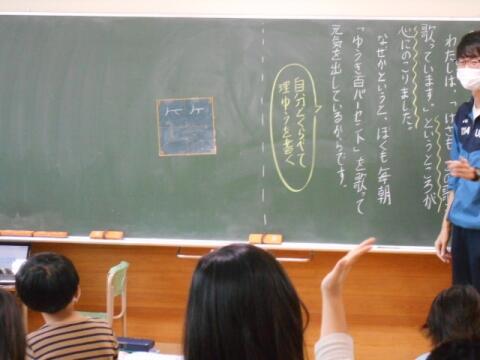 わたしは、「けさも
歌っています。」というところが
心にのこりました。
なぜかというと、ぼくも毎朝
「ゆうき百パーセント」を歌って
元気を出しているからです。
自分とくらべて
理ゆうを書く